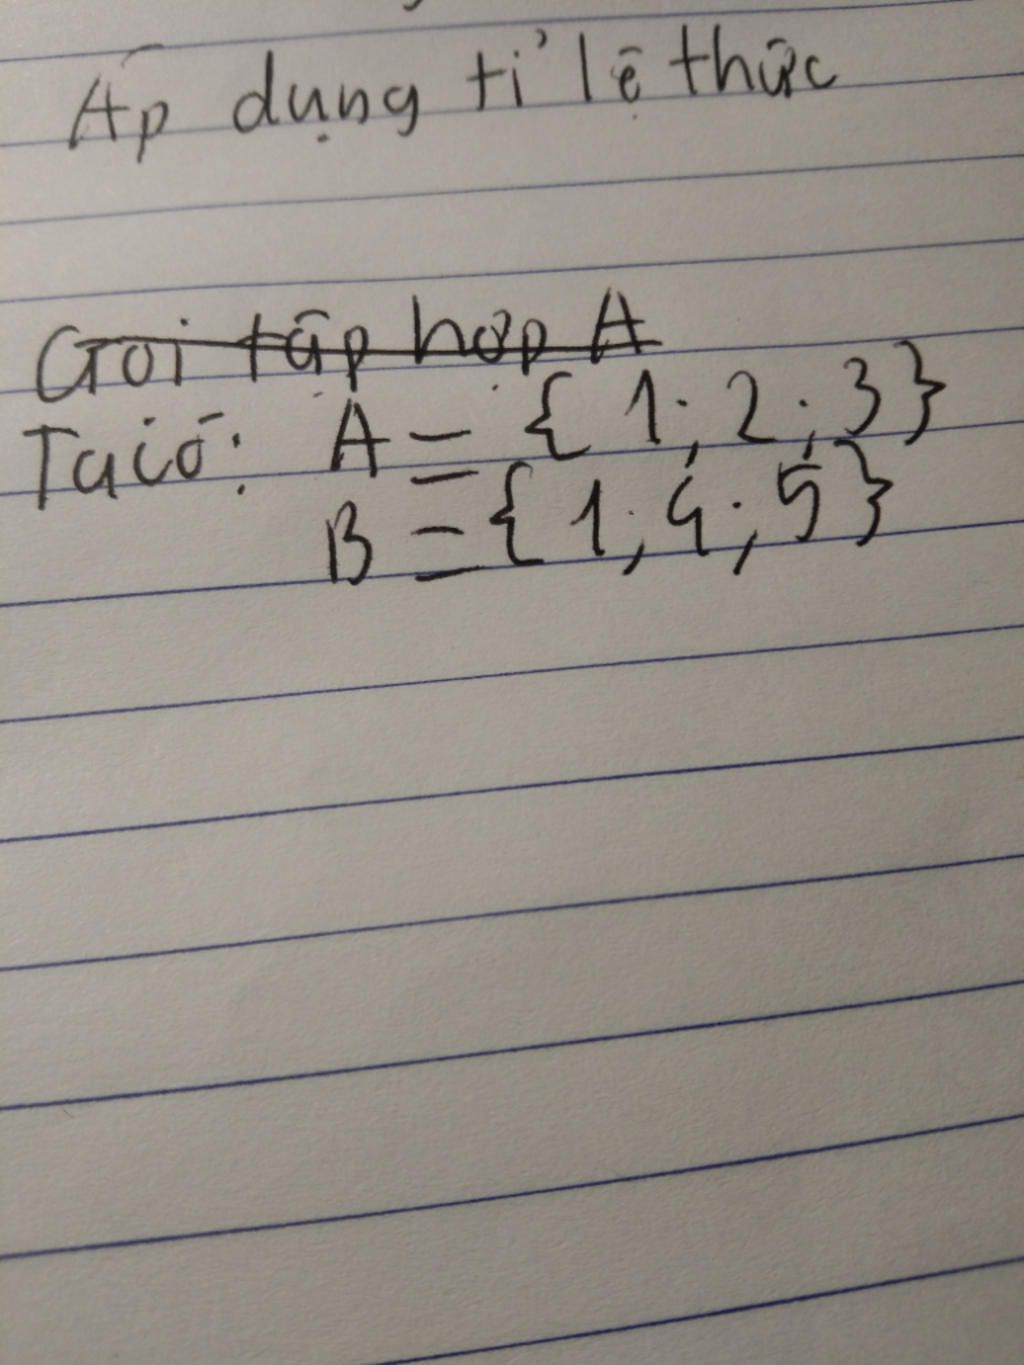 Áp dụng tỉ lệ thức
Gọi tập hợp A
Ta có: A = { 1; 2; 3}
B = { 1; 4; 5}